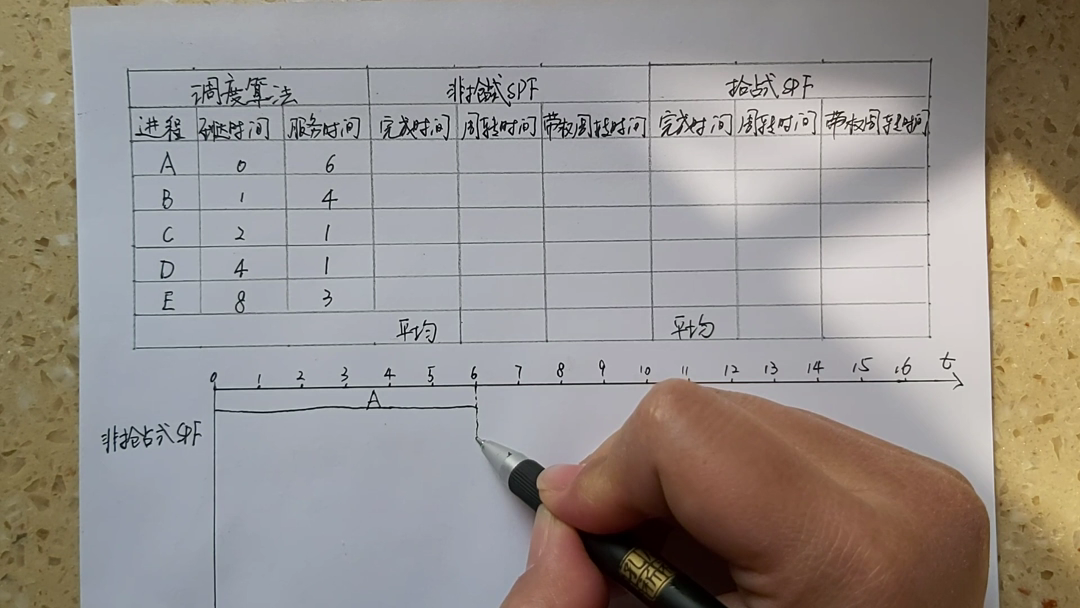 调度算法 非抢占式SPF 抢占式SPF
进程 到达时间 服务时间 完成时间 周转时间 带权周转时间 完成时间 周转时间 带权周转时间
A 0 6
B 1 4
C 2 1
D 4 1
E 8 3
平均 平均
0 1 2 3 4 5 6 7 8 9 10 11 12 13 14 15 16 t
A
非抢占式SPF